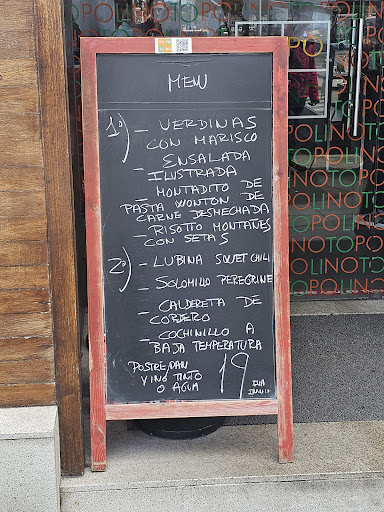 MENU
1º) - VERDINAS
CON MARISCO
- ENSALADA
ILUSTRADA
- MONTADITO DE
PASTA WONTON DE
CARNE DESMECHADA
- RISOTTO MONTAÑES
CON SETAS
2º) - LUBINA SWEET CHILI
- SOLOMILLO PEREGRINE
- CALDERETA DE
CORDERO
- COCHINILLO A
BAJA TEMPERATURA
POSTRE/PAN
VINO TINTO
O AGUA
19
IVA
POLINOTOPOLINOTO